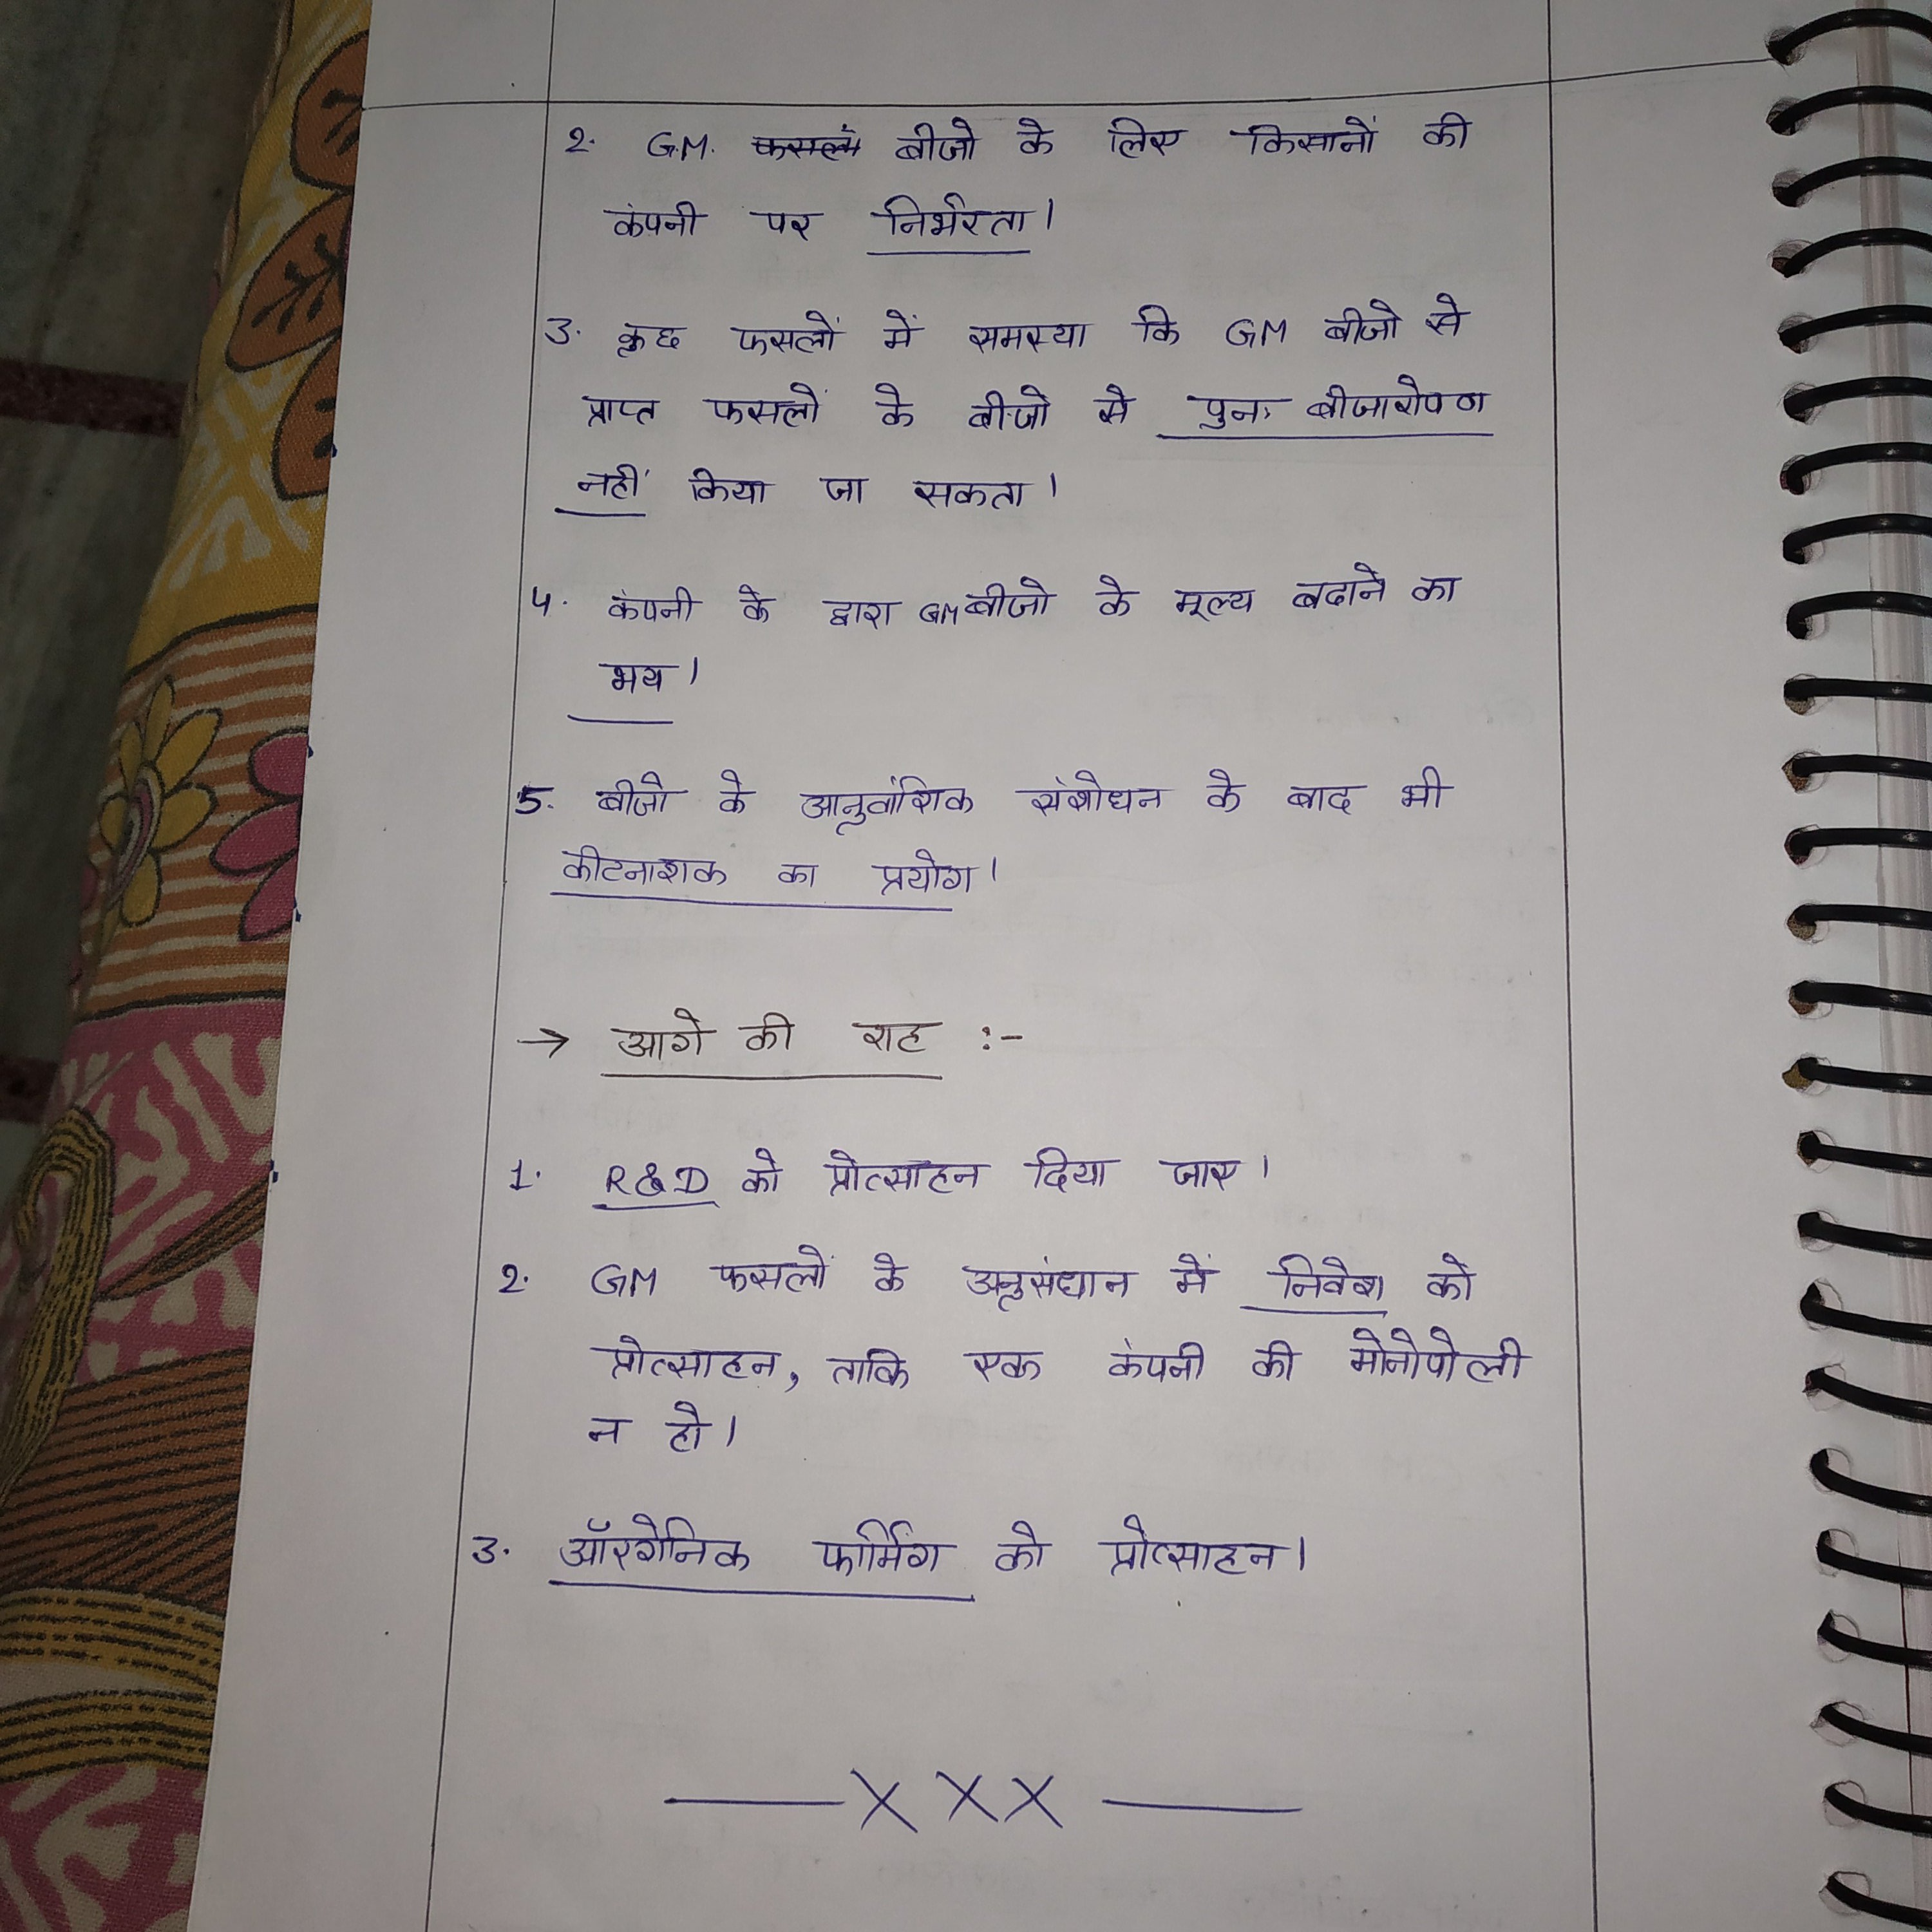 2. G.M. बीजो के लिए किसानों की
कंपनी पर निर्भरता।
3. कुछ फसलों में समस्या कि GM बीजो से
प्राप्त फसलों के बीजो से पुनः बीजारोपण
नहीं किया जा सकता।
4. कंपनी के द्वारा GM बीजो के मूल्य बढाने का
भय।
5. बीजो के आनुवांशिक संशोधन के बाद भी
कीटनाशक का प्रयोग।
→ आगे की राह :-
1. R&D को प्रोत्साहन दिया जाए।
2. GM फसलों के अनुसंधान में निवेश को
प्रोत्साहन, ताकि एक कंपनी की मोनोपोली
न हो।
3. ऑरगेनिक फार्मिंग को प्रोत्साहन।
——X X X——